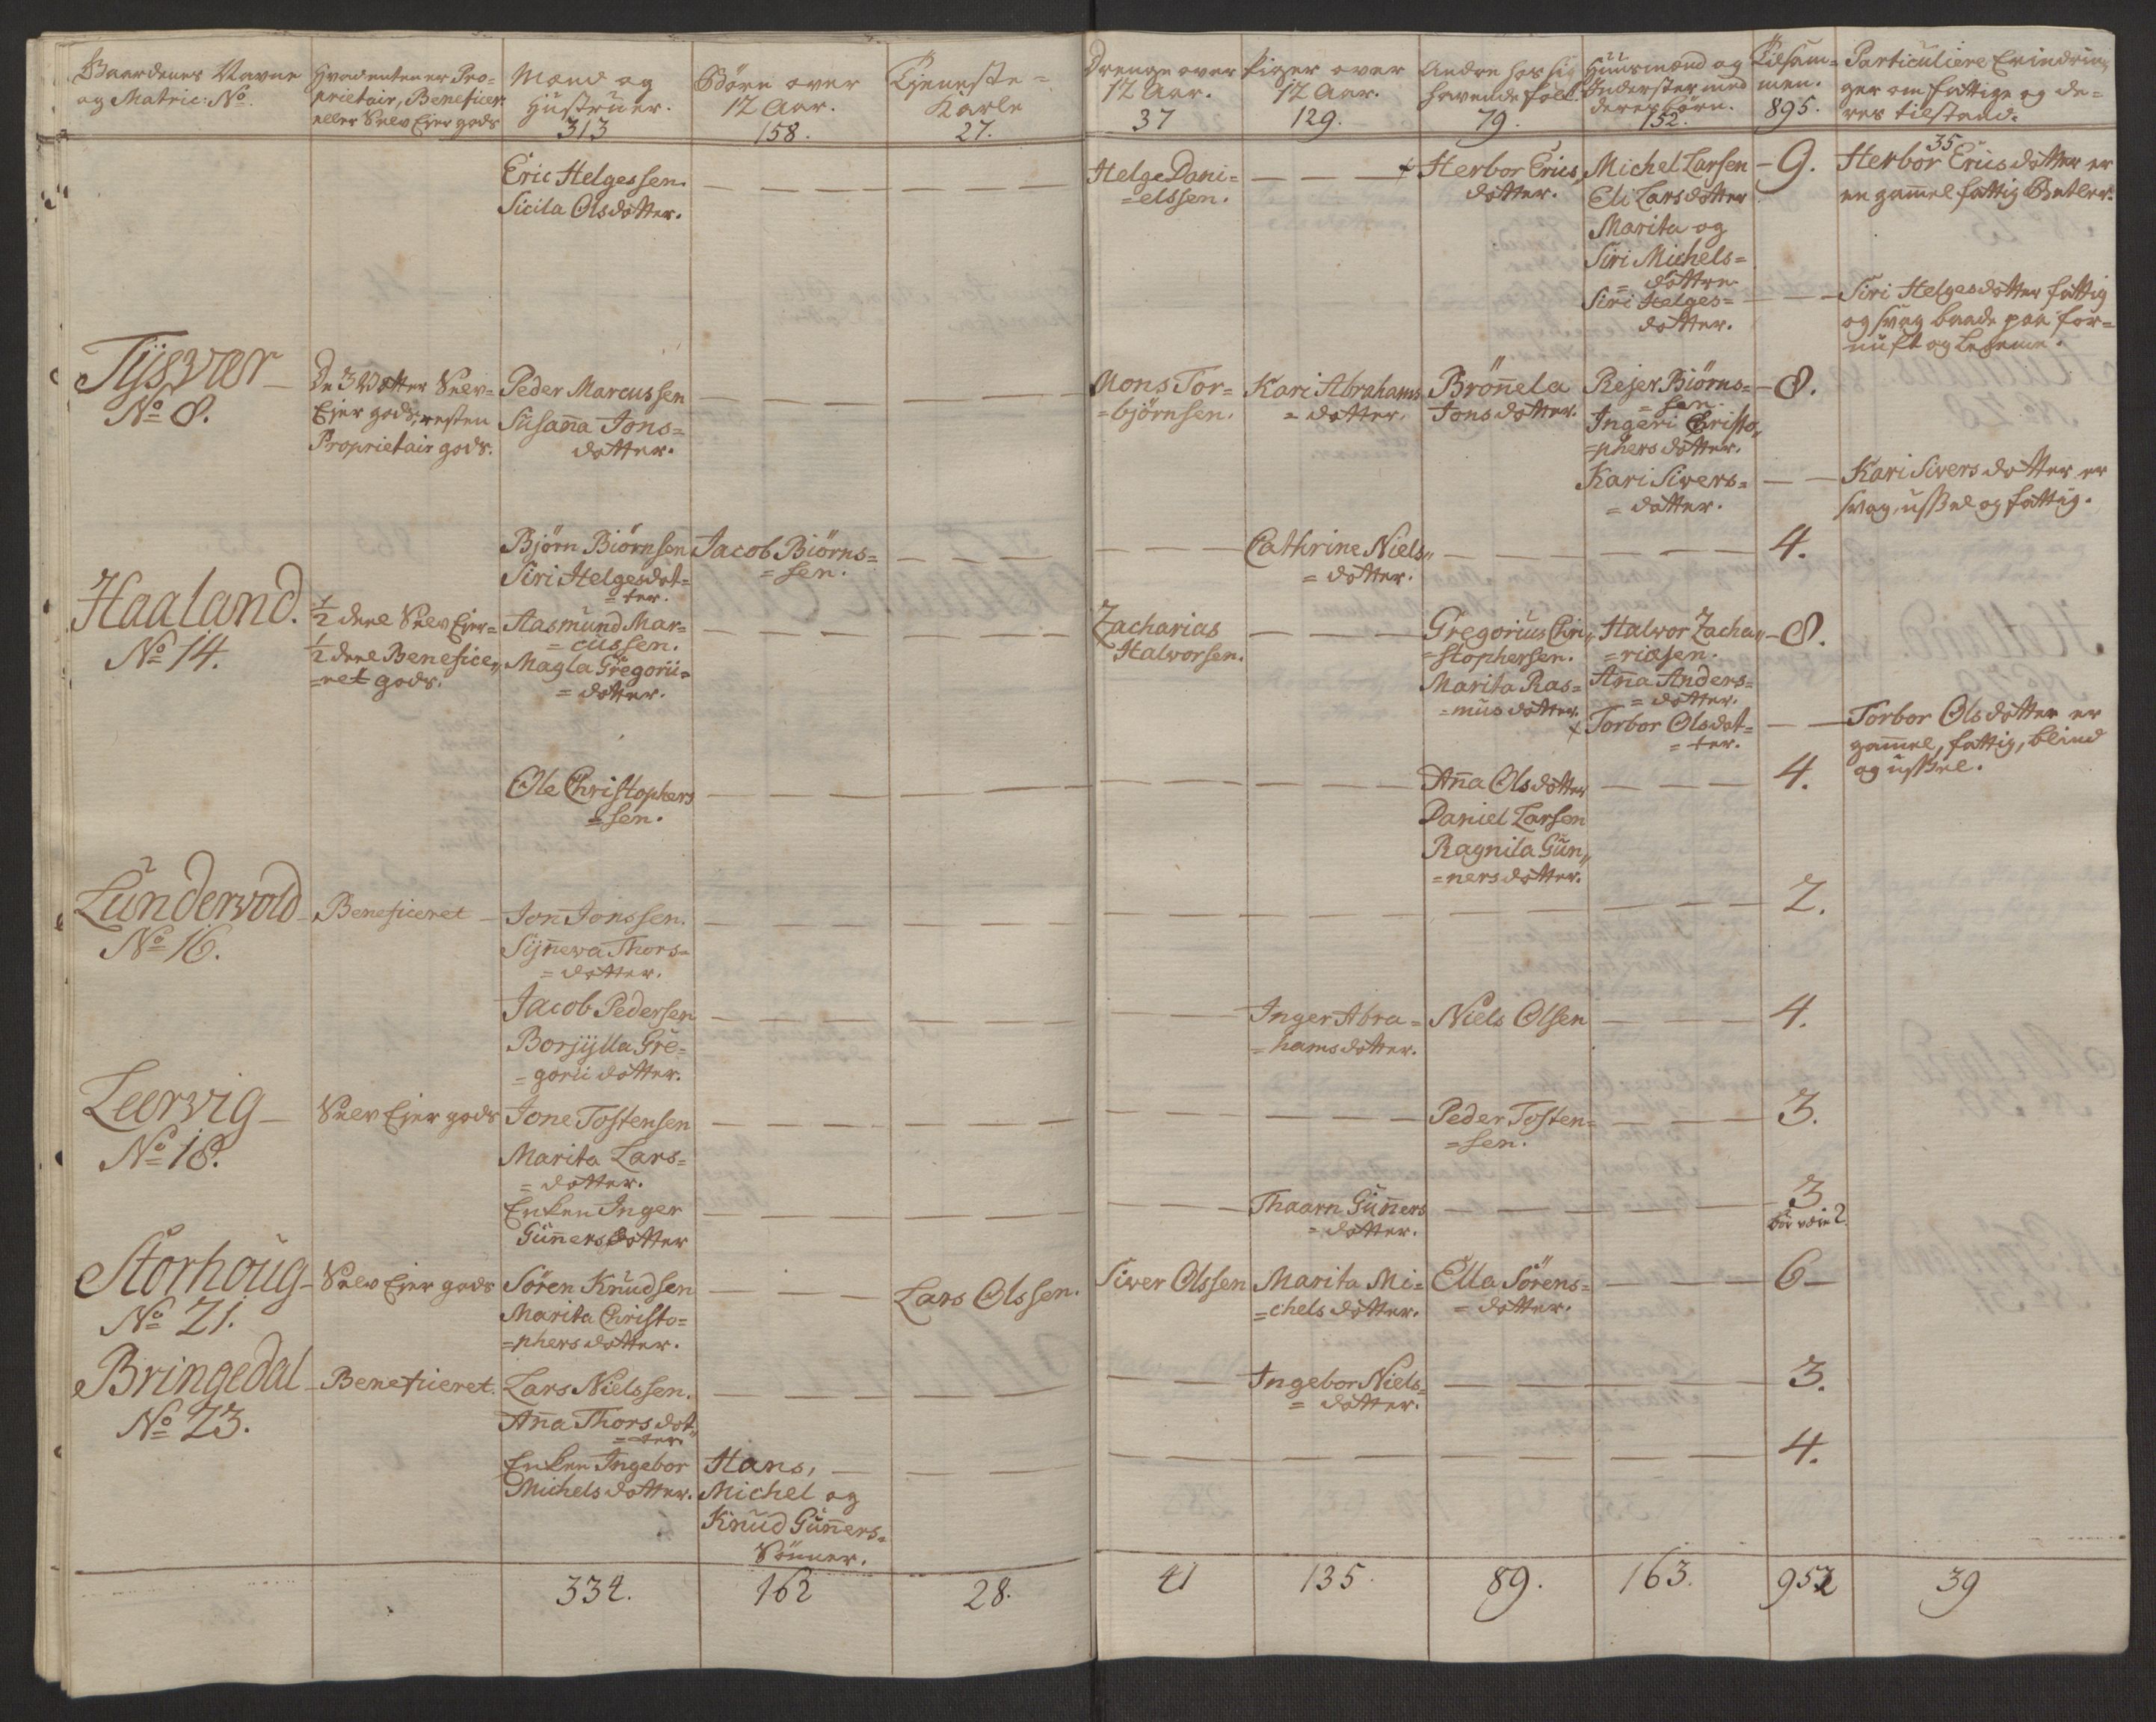 Gaardenes Navne
og Matric: No.
Hvad enten er Pro-
prietair, Beneficer.
eller Selv Ejer gods
Mænd og
Hustruer.
313
Börn over
12 Aar.
158.
Tjeneste-
Karle
27.
Drenge over
12 Aar.
37
Piger over
12 Aar.
129.
Andre hos sig
havende folk.
79.
Huusmænd og
Inderster med
deres börn.
152.
Tilsam-
men.
895.
Particuliere Erindrin-
ger om fattige og de-
res tilstand.
35
Eric Helgessen.
Sicila Olsdotter.
Helge Dani=
=elssen.
+ Herbor Erics,
dotter.
Michel Larsen
Eli Larsdotter
Marita og
Siri Michels=
= dottre
Siri Helges=
dotter.
9.
Herbor Ericsdotter er
en gamel fattig Betler.
Siri Helgesdotter fattig
og svag baade paa for=
nuft og Legeme.
Tÿsvær
No 8.
De 3 Dotter Selv-
Ejer gods, resten
Proprietair gods.
Peder Marcussen
Susana Jons=
dotter.
Mons Tor=
=björnsen.
Kari Abrahams
= dotter.
Brönela
Jonsdotter.
Rejer Biörns=
= sen.
Ingeri Christo„
=phersdotter.
Kari Sivers=
= dotter.
8.
Kari Siversdotter er
svag, ussel og fattig.
Björn Biörnsen
Siri Helgesdot=
=ter.
Jacob Biörns=
= sen.
Cathrine Niels„
= dotter.
4.
Haaland.
No 14.
1/2 deel Selv Ejer-
1/2 deel Benefice„
=ret gods.
Aasmund Mar=
= cussen.
Magla Gregorii=
= dotter.
Zacharias
Halvorsen.
Gregorius Chri„
=stophersen.
Marita Ras=
=musdotter.
Halvor Zacha„
=riasen.
Ana Anders=
= dotter.
+ Torbor Olsdot=
= ter.
8.
Torbor Olsdotter er
gamel, fattig, blind
og ussel.
Ole Christophers
=sen.
Ana Olsdotter
Daniel Larsen
Ragnila Gun„
=nersdotter.
4.
Lundervold
No 16.
Beneficeret
Jon Jonssen.
Sÿnewa Thors=
= dotter.
2.
Jacob Pedersen
Borjÿlla Gre=
= gorii dotter.
Inger Abra=
=hamsdotter.
Niels Olsen
4.
Leervig
No 18.
Selv Ejer gods
Jone Tostensen
Marita Lars=
= dotter.
Peder Tosten=
=sen.
3.
Enken Inger
Gunersdotter
Thaarn Guners
= dotter.
3
bör være 2.
Storhoug
No 21.
Selv Ejer gods
Sören Knudsen
Marita Christo=
=phersdotter.
Lars Olssen.
Siver Olssen
Marita Mi=
=chelsdotter.
Ella Sörens=
= dotter.
6
Bringedal
No 23.
Beneficeret.
Lars Nielssen.
Ana Thorsdot„
=ter.
Ingebor Niels=
= dotter.
3.
Enken Ingebor
Michelsdotter.
Hans,
Michel og
Knud Guners=
Sönner.
4.
334.
162
28.
41
135.
89.
163.
952
39